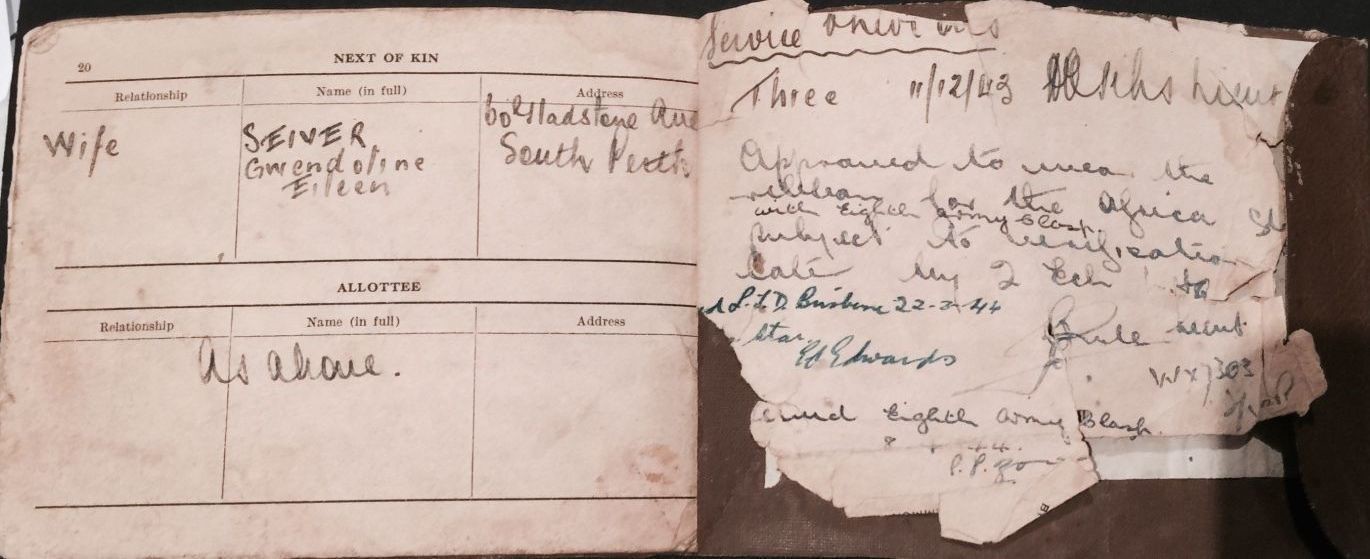 20
NEXT OF KIN
Relationship
Name (in full)
Address
Wife
SEIVER
Gwendoline
Eileen
60 Gladstone Ave
South Perth
ALLOTTEE
Relationship
Name (in full)
Address
As above.
Service
Three 11/12/43 Lieut
Approved to wear the
ribbon for the Africa St
with Eighth Army Clasp
subject to verification
by 2 Ech
L.T.D. Brisbane 22-3-44
Star
Edwards
Lieut
WX7303
Eighth Army Clasp
44.